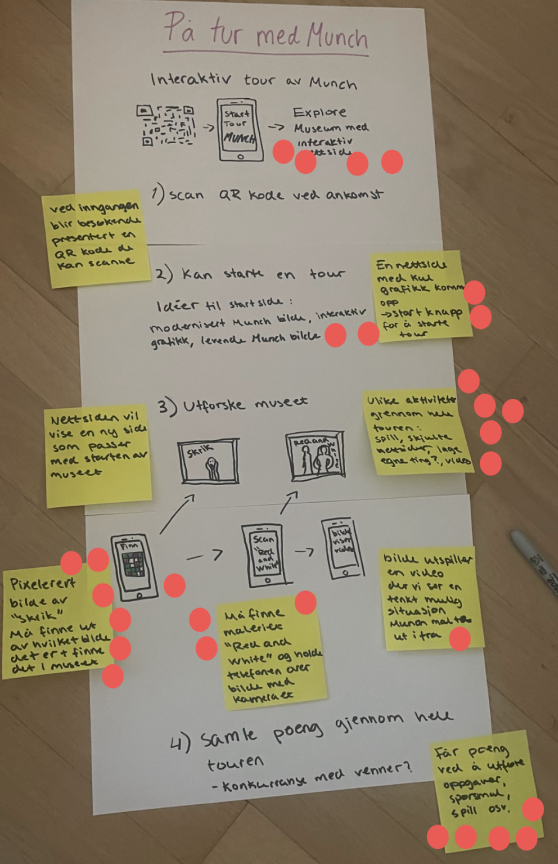 På tur med Munch
Interaktiv tour av Munch
Start
Tour
MUNCH
Explore
Museum med
interaktiv
1) Scan QR kode ved ankomst
ved inngangen
blir besøkende
presentert en
QR kode de
kan scanne
2) Kan starte en tour
Idéer til startside :
modernisert Munch bilde, interaktiv
grafikk, levende Munch bilde
En nettside
med kul
grafikk
opp
→ start knapp
for å starte
tour
3) Utforske museet
Nettsiden vil
vise en ny side
som passer
med starten av
museet
Skrik
Red and
Ulike
gjennom hele
touren :
spill, skjulte
nettsider, lage
egne ting?, video
Finn
Scan
"Red
and
White"
bilde
viser
video
Pixelerert
bilde av
"Skrik"
Må finne ut
av hvilket bilde
det er + finne
det i museet
Må finne
maleriet
"Red and
White" og holde
telefonen over
bilde med
kameraet
bilde utspiller
en video
der vi ser en
tenkt mulig
situasjon
Munch
ut i fra
4) Samle poeng gjennom hele
touren
- Konkurranse med venner?
Får poeng
ved å utføre
oppgaver,
spørsmål,
spill osv.